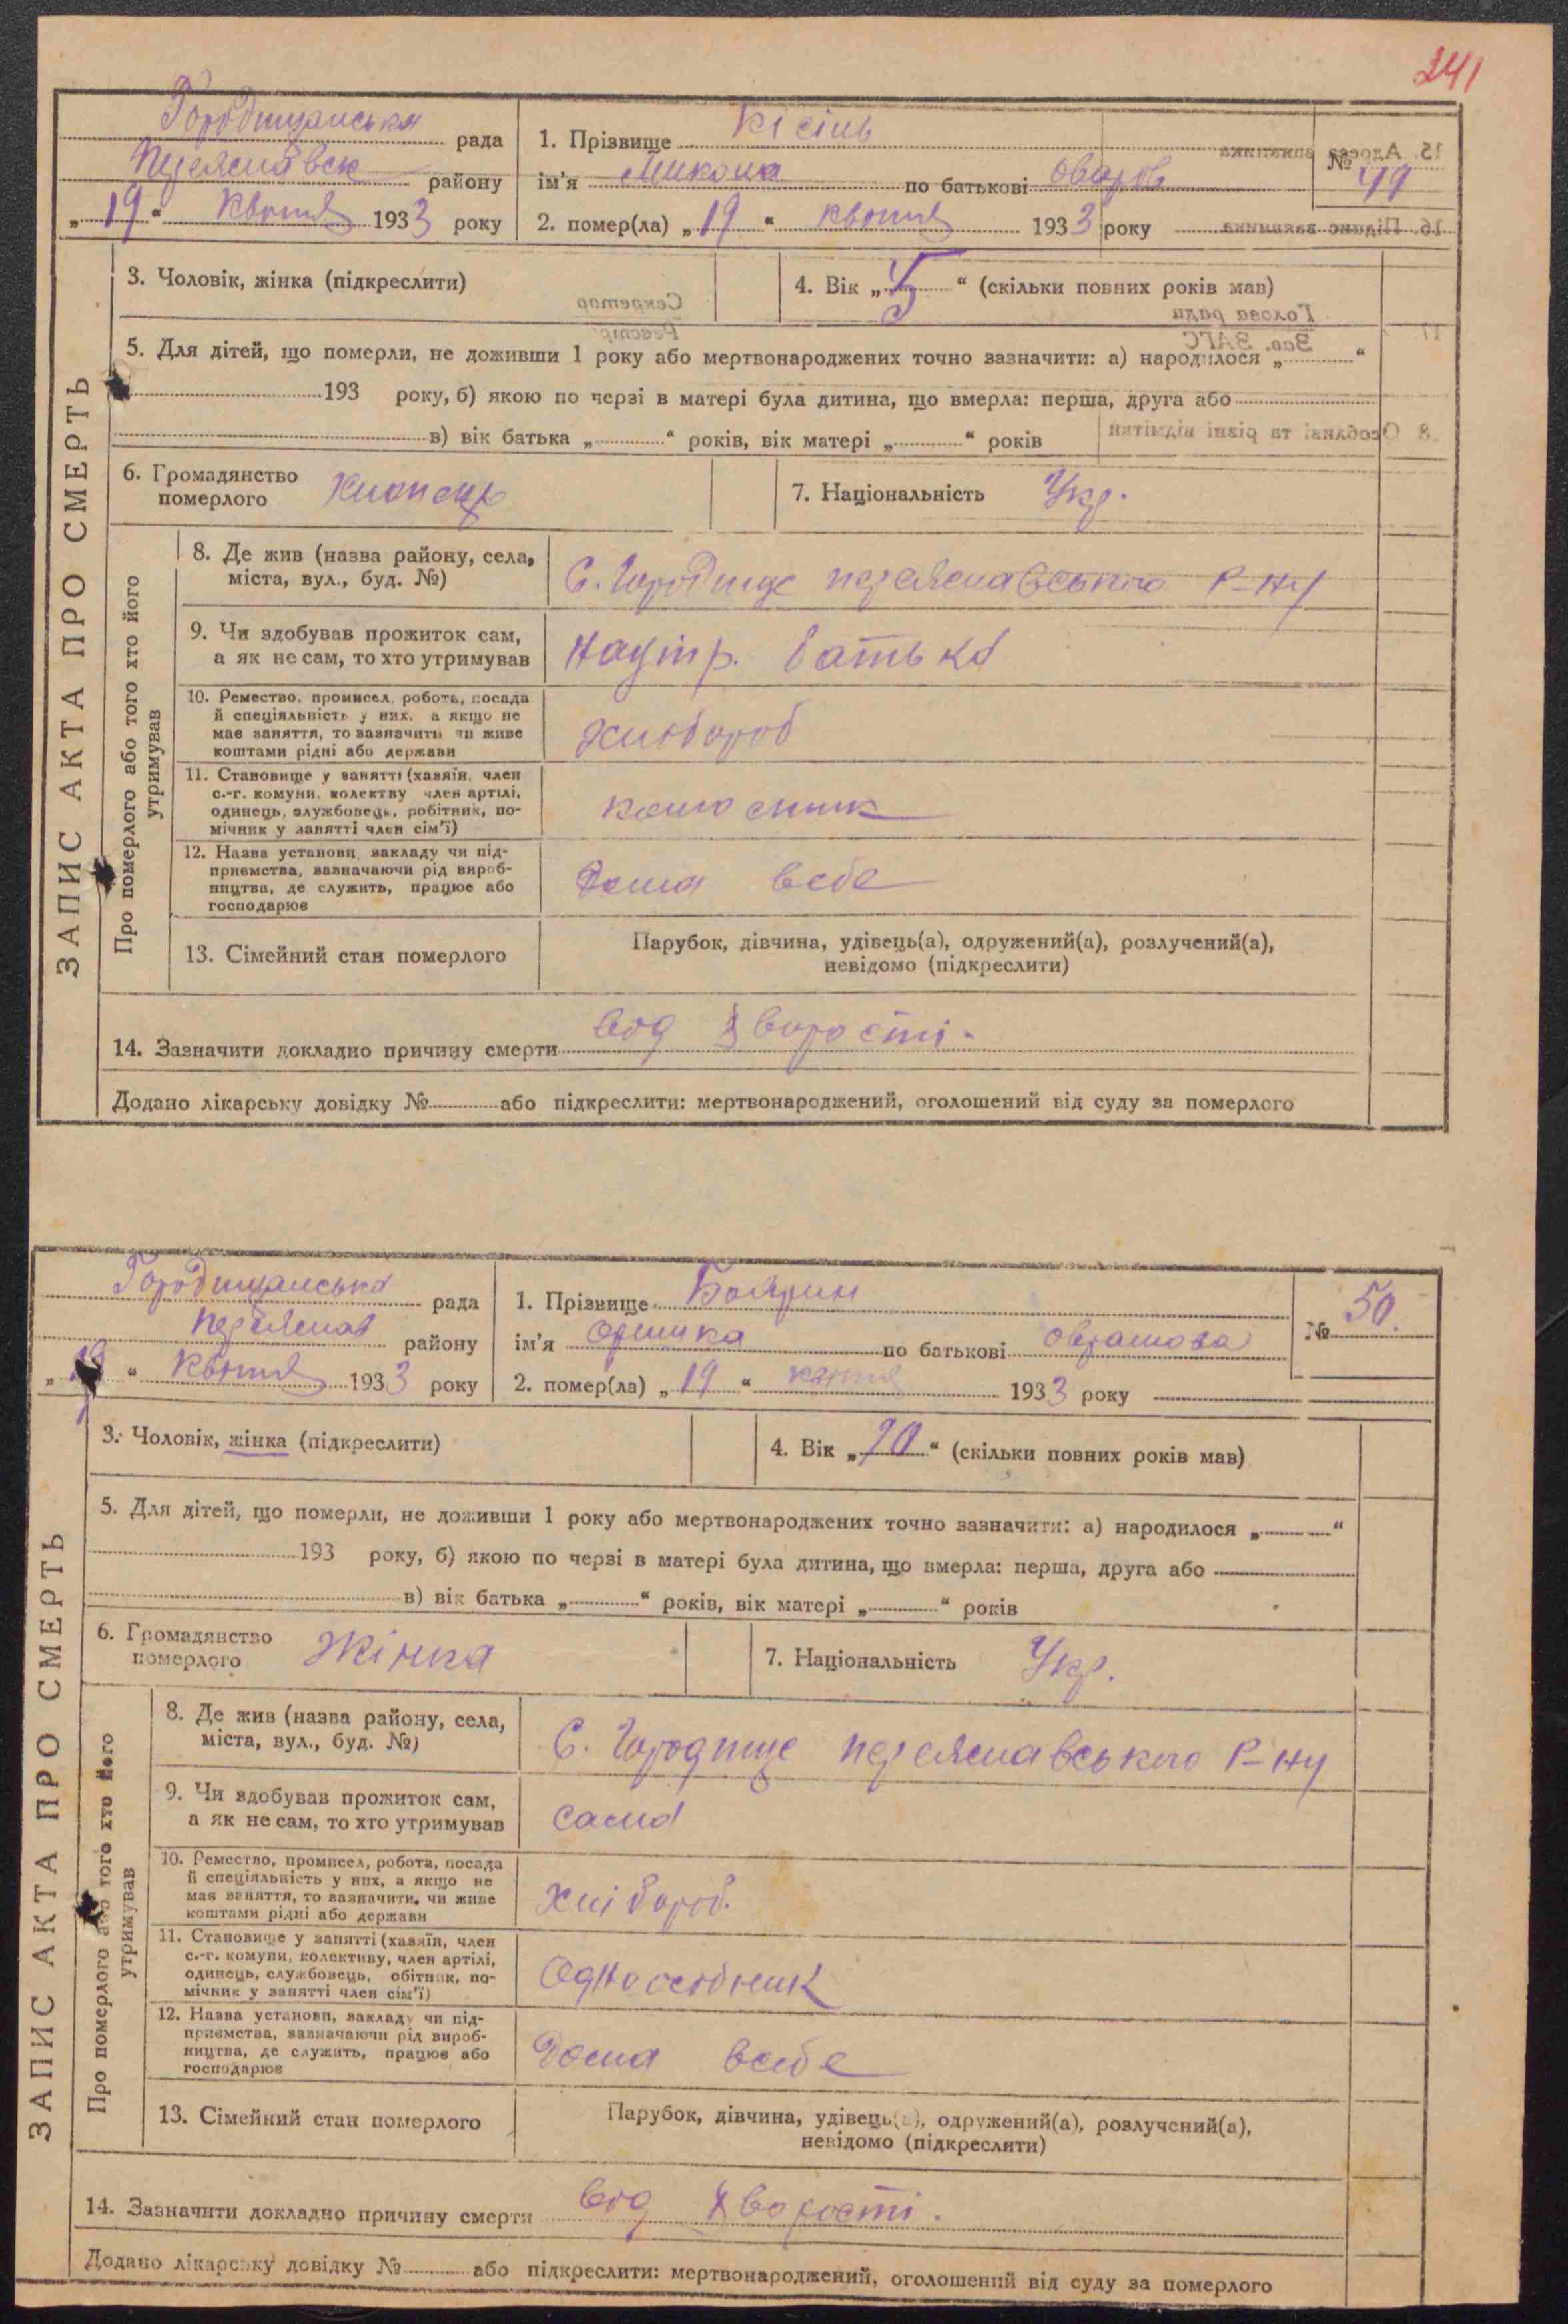 241
Городищанська рада
Переяславськ району
„19“ Квітня 1933 року
1. Прізвище Кісіль
ім'я Микола по батькові
2. помер(ла) „19“ квітня 1933 року
№ 49
15. Адреса заявника
16. Підпис заявника
3. Чоловік, жінка (підкреслити)
4. Вік „5“ (скільки повних років мав)
Секретар
Реєстр
Голова ради
Зав. ЗАГС
17
5. Для дітей, що померли, не доживши 1 року або мертвонароджених точно зазначити: а) народилося „ “
193 року, б) якою по черзі в матері була дитина, що вмерла: перша, друга або
в) вік батька „ “ років, вік матері „ “ років
8. Особливі та різні відмітки
6. Громадянство
померлого Хлопець
7. Національність Укр.
ЗАПИС АКТА ПРО СМЕРТЬ
Про померлого або того хто його
утримував
8. Де жив (назва району, села,
міста, вул., буд. №)
С. Городище переяславського р-ну
9. Чи здобував прожиток сам,
а як не сам, то хто утримував
На утр. батька
10. Ремество, промисел, робота, посада
й спеціяльність у них, а якщо не
має заняття, то зазначити чи живе
коштами рідні або держави
Хлібороб
11. Становище у занятті (хазяїн, член
с.-г. комуни, колективу член артілі,
одинець, службовець, робітник, по-
мічник у занятті член сім'ї)
12. Назва установи, закладу чи під-
приємства, зазначаючи рід вироб-
ництва, де служить, працює або
господарює
Дома всебе
13. Сімейний стан померлого
Парубок, дівчина, удівець(а), одружений(а), розлучений(а),
невідомо (підкреслити)
14. Зазначити докладно причину смерти вод хворості.
Додано лікарську довідку № або підкреслити: мертвонароджений, оголошений від суду за померлого
Городищанська рада
Переяслав району
„19“ Квітня 1933 року
1. Прізвище Боярин
ім'я Оришка по батькові
2. помер(ла) „19“ квітня 1933 року
№ 50.
3. Чоловік, жінка (підкреслити)
4. Вік „70“ (скільки повних років мав)
5. Для дітей, що померли, не доживши 1 року або мертвонароджених точно зазначити: а) народилося „ “
193 року, б) якою по черзі в матері була дитина, що вмерла: перша, друга або
в) вік батька „ “ років, вік матері „ “ років
6. Громадянство
померлого Жінка
7. Національність Укр.
ЗАПИС АКТА ПРО СМЕРТЬ
Про померлого або того хто його
утримував
8. Де жив (назва району, села,
міста, вул., буд. №)
С. Городище переяславського р-ну
9. Чи здобував прожиток сам,
а як не сам, то хто утримував
сама
10. Ремество, промисел, робота, посада
й спеціяльність у них, а якщо не
має заняття, то зазначити, чи живе
коштами рідні або держави
Хлібороб.
11. Становище у занятті (хазяїн, член
с.-г. комуни, колективу, член артілі,
одинець, службовець, обітник, по-
мічник у занятті член сім'ї)
Одноосібник
12. Назва установи, закладу чи під-
приємства, зазначаючи рід вироб-
ництва, де служить, працює або
господарює
Дома всебе
13. Сімейний стан померлого
Парубок, дівчина, удівець(а), одружений(а), розлучений(а),
невідомо (підкреслити)
14. Зазначити докладно причину смерти вод хворості.
Додано лікарську довідку № або підкреслити: мертвонароджений, оголошений від суду за померлого